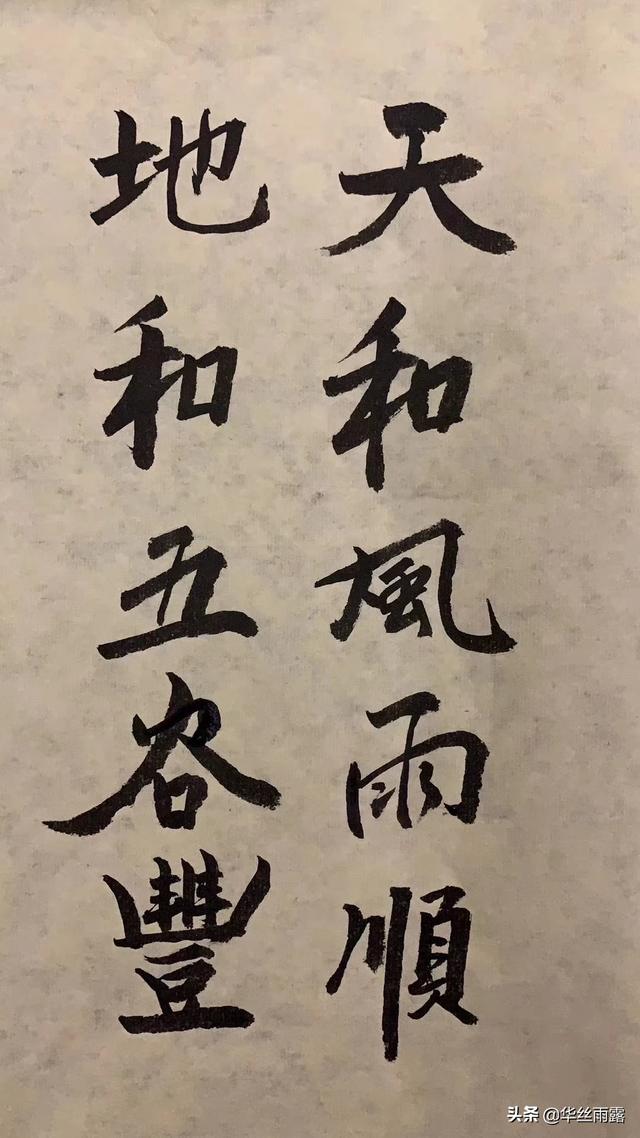 天和風雨順
地和五谷豐
头条 @华丝雨露